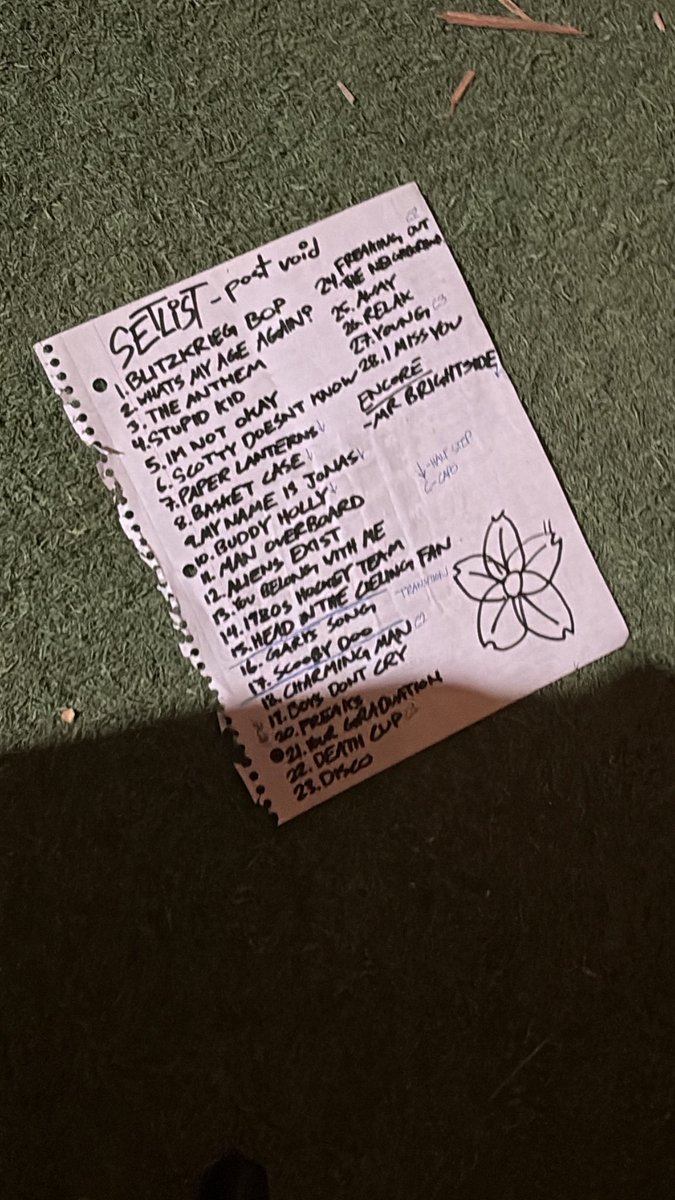 SETLIST - post void
1. BLITZKRIEG BOP
2. WHATS MY AGE AGAIN?
3. THE ANTHEM
4. STUPID KID
5. IM NOT OKAY
6. SCOTTY DOESNT KNOW
7. PAPER LANTERNS ↓
8. BASKET CASE ↓
9. MY NAME IS JONAS ↓
10. BUDDY HOLLY ↓
11. MAN OVERBOARD
12. ALIENS EXIST
13. YOU BELONG WITH ME
14. 1980s HOCKEY TEAM
15. HEAD IN THE CIELING FAN
16. GARYS SONG
17. SCOOBY DOO
18. CHARMING MAN C2
19. BOYS DONT CRY
20. FREAKS
21. YOUR GRADUATION
22. DEATH CUP
23. DISCO
C2
24. FREAKING OUT
THE NEIGHBORHOOD
25. AWAY
26. RELAX
27. YOUNG C3
28. I MISS YOU
ENCORE
- MR BRIGHTSIDE
↓ - HALF STEP
C - CAPO